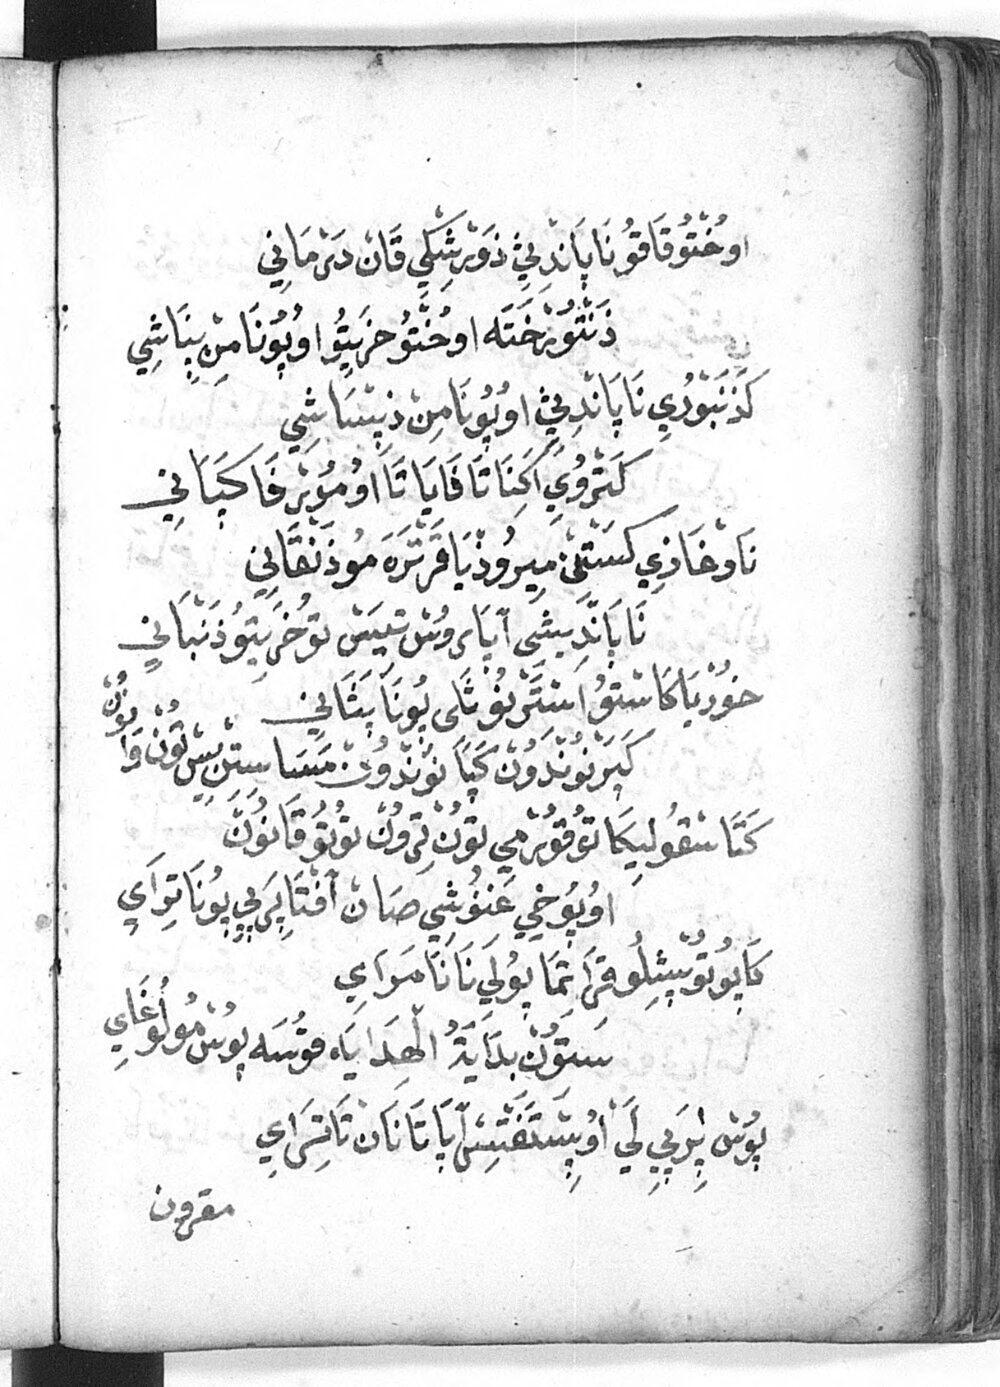 اوخْتُوقَاقُونَا پَانْدِيثِ ذَوَرِشْكِي قَانْ دَرْمَانِي
ذَنْتُورْخَتَه اوخْتُو خَرِيتُو اوپُونَا مِنْ پِنَاشِي
كَذَنَبُورِي نَا پَانْدِيثِ اوپُونَا مِنْ ذِپِسَاشِي
كَلَتْرُوي اَكِنَاتَا فَايَاتَا اومُورْفَا كَپَانِي
نَاوْخَاذِي كَسْتِئ مِيرُوذْيَا قَرْتَرَه مُوذَنْخَانِي
نَا پَانْدِيشِي آيَارُوسْ تِيسْ تُوخَرِيتُو ذَنْبَانِي
خُورْيَا كَاسْتُو اَسْتَرْنُوثَلِي پُونَا پَثَانِي
كَپَرْنُونْدُونْ كَپَا نُونْدُونْ مَسَا سْتِنْ پِسْتُونْ وَايُونْ
كَتَا سْقُولِيكَا تُوقُورْمِي تُونْ تِرُونْ تُوتُو قَانُونْ
اوپُوخِي عَنُوشِي صَانْ آفْتَا پَرَپِي پُونَا تِرَايِ
كَاپُوتُو پِشِلُو قْرَاتْمَا پُولِي نَانَا مَرَايِ
سَتُونْ بِدَايَةُ الْهِدَايَاه قُوسَه پُوسْ مُولُوغَايِ
پُوسْ پِرَپِي لَيْ اوپِسْتَفْتِسْ آپَاتَانَانْ تَاتِرَايِ
مقرون